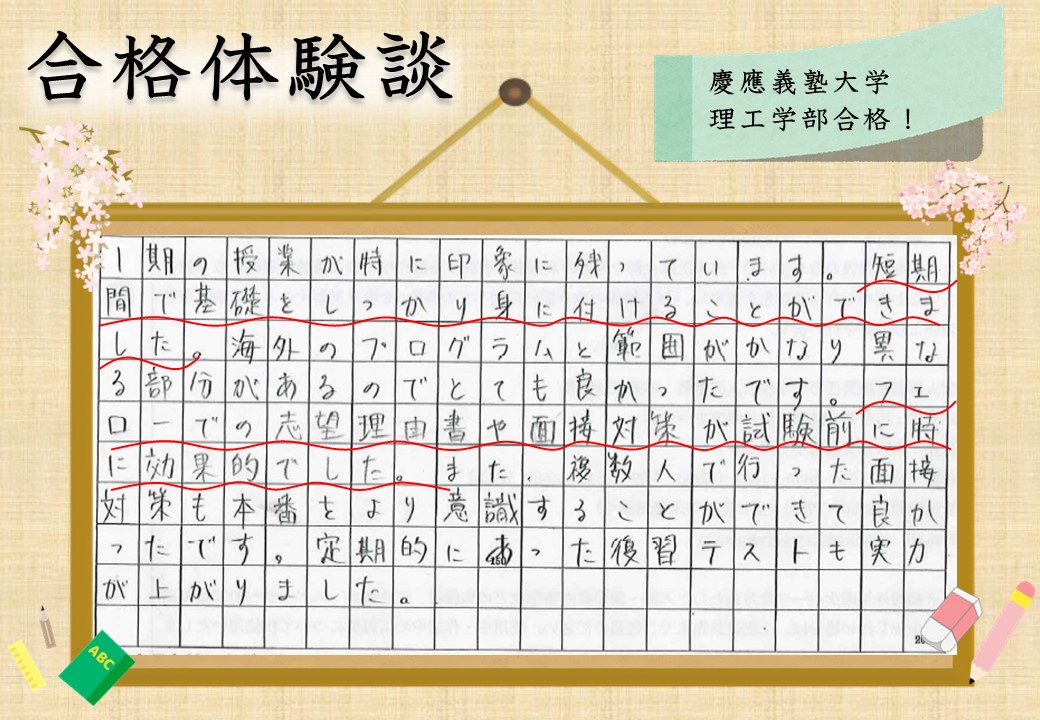 合格体験談
慶應義塾大学
理工学部合格！
1期の授業が特に印象に残っています。短期
間で基礎をしっかり身に付けることができま
した。海外のプログラムと範囲がかなり異な
る部分があるのでとても良かったです。フェ
ローでの志望理由書や面接対策が試験前に特
に効果的でした。また、複数人で行った面接
対策も本番をより意識することができて良か
ったです。定期的にあった復習テストも実力
が上がりました。
ABC